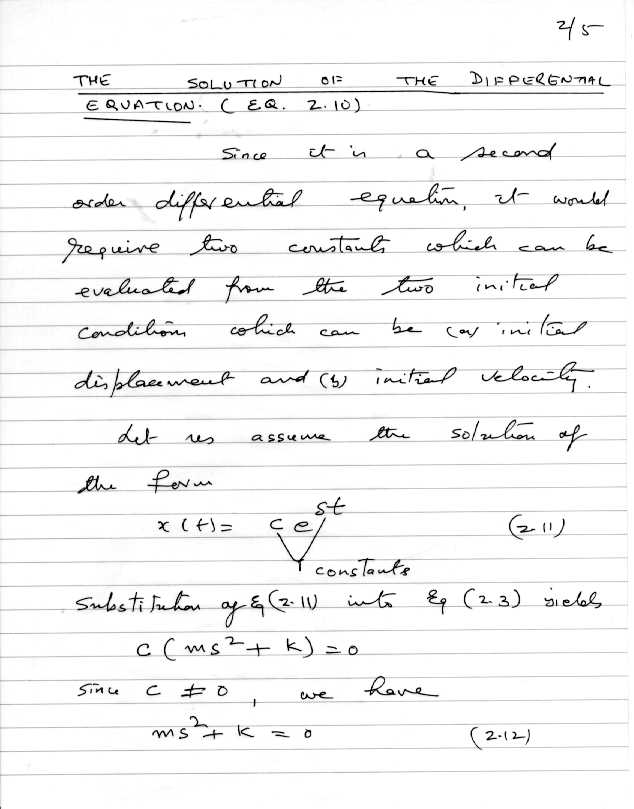 2/5
THE SOLUTION OF THE DIFFERENTIAL
EQUATION. (EQ. 2.10)
Since it is a second
order differential equation, it would
require two constants which can be
evaluated from the two initial
conditions which can be (a) initial
displacement and (b) initial velocity.
Let us assume the solution of
the form
x(t) = c e^st (2.11)
constants
Substitution of Eq (2.11) into Eq (2.3) yields
c (ms² + k) = 0
Since c ≠ 0, we have
ms² + k = 0 (2.12)